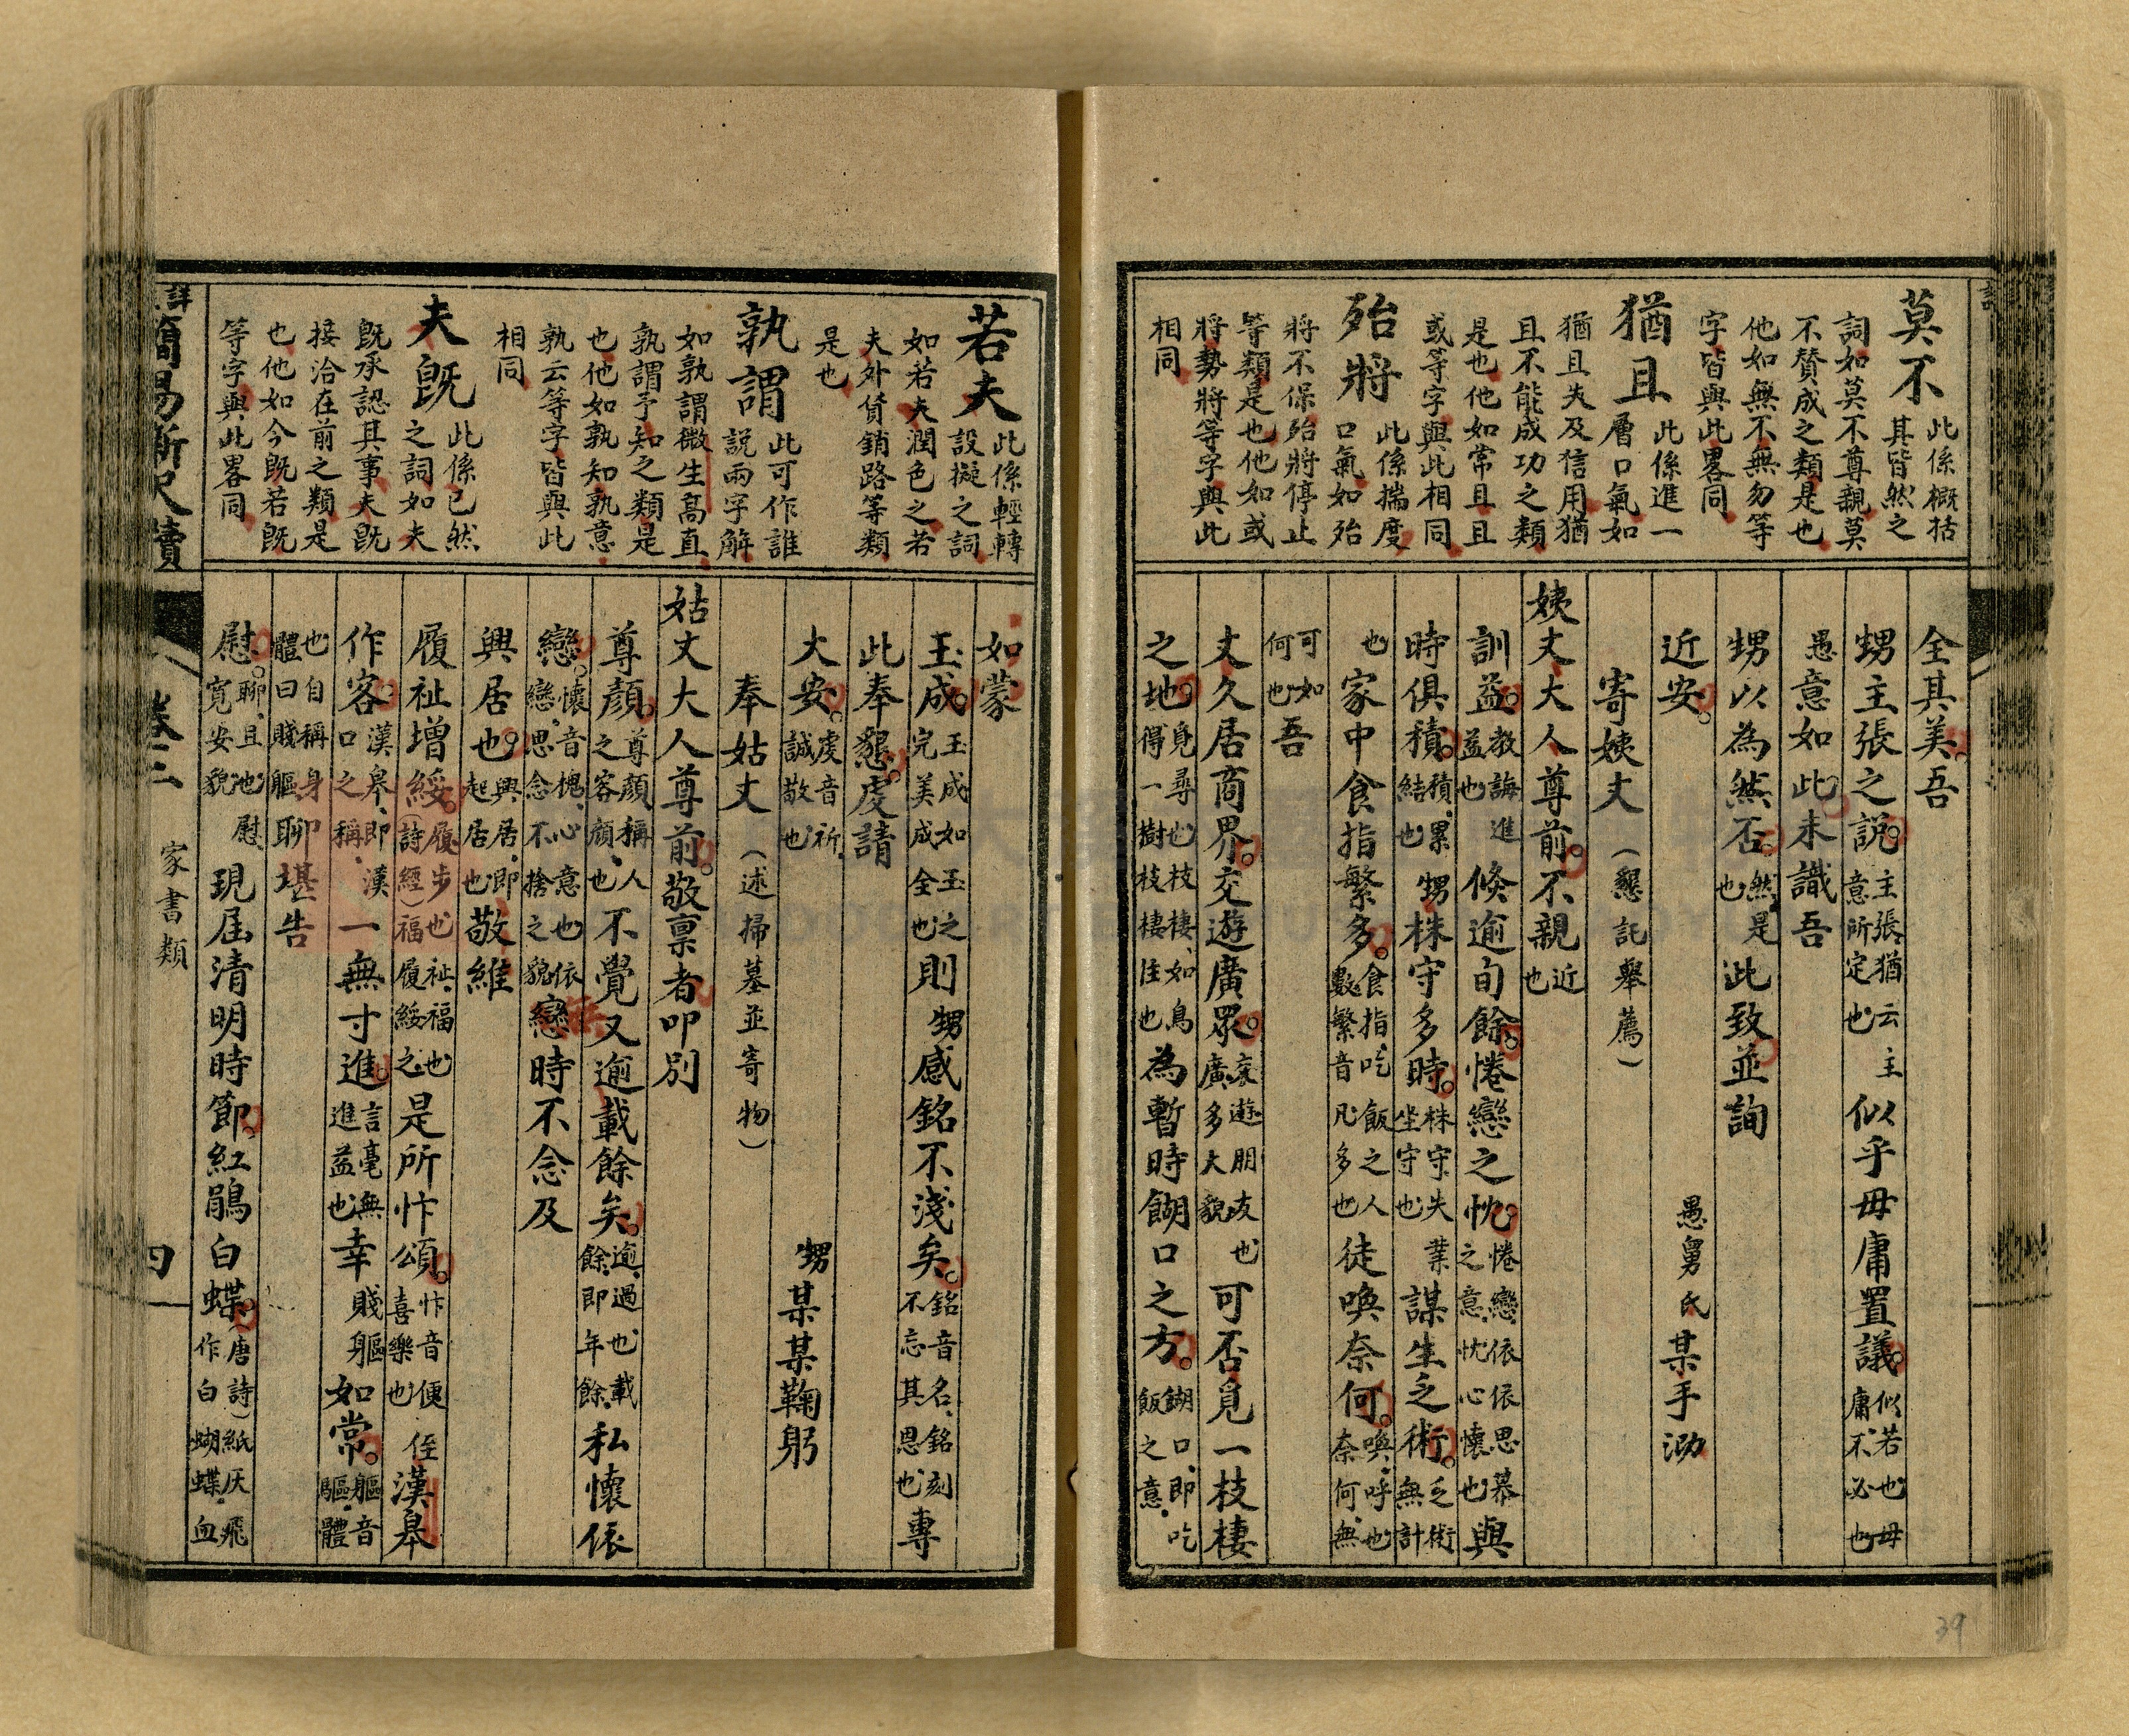 莫不
此係概括
其皆然之
詞如莫不尊親莫
不贊成之類是也
他如無不無勿等
字皆與此畧同
猶且
此係進一
層口氣如
猶且失及信用猶
且不能成功之類
是也他如常且且
或等字與此相同
殆將
此係揣度
口氣如殆
將不保殆將停止
等類是也他如或
將勢將等字與此
相同
全其美。吾
甥主張之說。主張猶云主意所定也似乎毋庸置議。似若也毋庸不必也
愚意如此未識吾
甥以為然否。然是也此致並詢
近安。
愚舅氏某手泐
寄姨丈（懇託舉薦）
姨丈大人尊前。不親近也
訓益。教誨進益也倐逾旬餘。惓戀之忱。惓戀依依思慕之意忱心懷也與
時俱積。積累結也甥株守多時。株守失業坐守也謀生乏術。乏術無計
也家中食指繁多。食指吃飯之人數繁音凡多也徒喚奈何。喚呼也奈何無
可如何也吾
丈久居商界。交遊廣眾。交遊朋友也廣多大貌可否覓一枝棲
之地。覓尋也枝棲如鳥得一樹枝棲住也為暫時餬口之方。餬口即吃飯之意
若夫
此係輕轉
設擬之詞
如若夫潤色之若
夫外貨銷路等類
是也
孰謂
此可作誰
說兩字解
如孰謂微生高直
孰謂予知之類是
也他如孰知孰意
孰云等字皆與此
相同
夫既
此係已然
之詞如夫
既承認其事夫既
接洽在前之類是
也他如今既若既
等字與此畧同
如蒙
玉成。玉成如玉之完美成全也則甥感銘不淺矣。銘音名銘刻不忘其恩也專
此奉懇。虔請
大安。虔音祈誠敬也
甥某某鞠躬
奉姑丈（述掃墓並寄物）
姑丈大人尊前。敬禀者叩別
尊顏。尊顏稱人之容顏也不覺又逾載餘矣。逾過也載餘即年餘私懷依
戀。懷音槐心意也依戀思念不捨之貌戀時不念及
興居也。興居即起居也敬維
履祉增綏。履步也祉福也（詩經）福履綏之是所忭頌。忭音便喜樂也侄漢皋
作客。漢皋即漢口之稱一無寸進。言毫無進益也幸賤軀如常。軀音驅體
也自稱身體曰賤軀聊堪告
慰。聊且也慰寬安貌現屆清明時節。紅鵑白蝶。（唐詩）紙灰飛作白蝴蝶血
簡易新尺牘
卷三
家書類
四
39